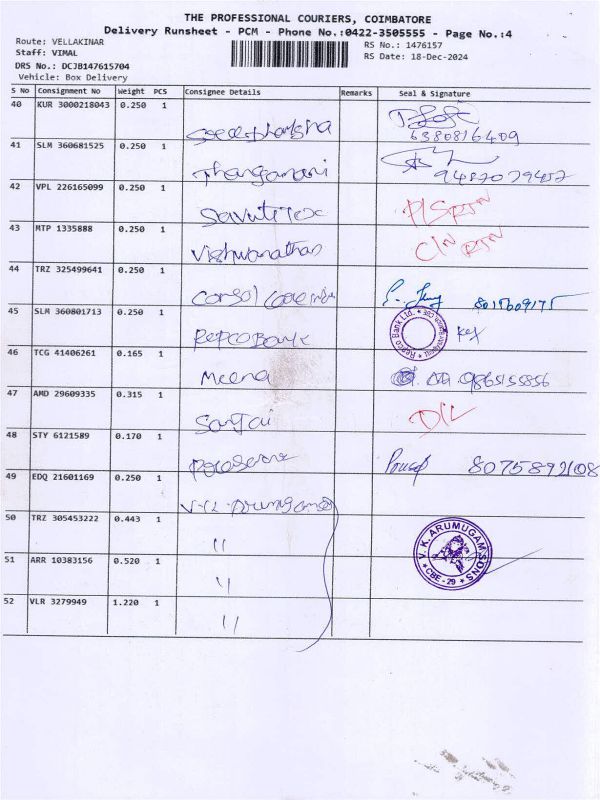 THE PROFESSIONAL COURIERS, COIMBATORE
Delivery Runsheet - PCM - Phone No.:0422-3505555 - Page No.:4
Route: VELLAKINAR
RS No.: 1476157
Staff: VIMAL
RS Date: 18-Dec-2024
DRS No.: DCJB147615704
Vehicle: Box Delivery
S No Consignment No Weight PCS Consignee Details Remarks Seal & Signature
40 KUR 3000218043 0.250 1
6380816409
41 SLM 360681525 0.250 1
Thangamani
42 VPL 226165099 0.250 1
43 MTP 1335888 0.250 1
Vishwanathan
44 TRZ 325499641 0.250 1
Consol
45 SLM 360801713 0.250 1
Repco Bank Repco Bank Ltd.
46 TCG 41406261 0.165 1
Meena 9865155856
47 AMD 29609335 0.315 1
Sanjai D/L
48 STY 6121589 0.170 1
49 EDQ 21601169 0.250 1
V.K. Arumugam
50 TRZ 305453222 0.443 1
"
V. K. ARUMUGAM SONS * CBE - 29 *
51 ARR 10383156 0.520 1
"
52 VLR 3279949 1.220 1
"